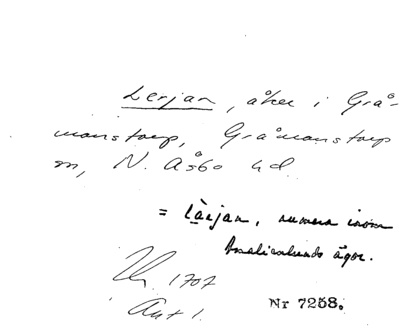 Lerjan, åker i Grå-
manstorp, Gråmanstorp
sn, N. Åsbo hd.
= Lärjan, numera inom
ägor.
1707
Nr 7258.